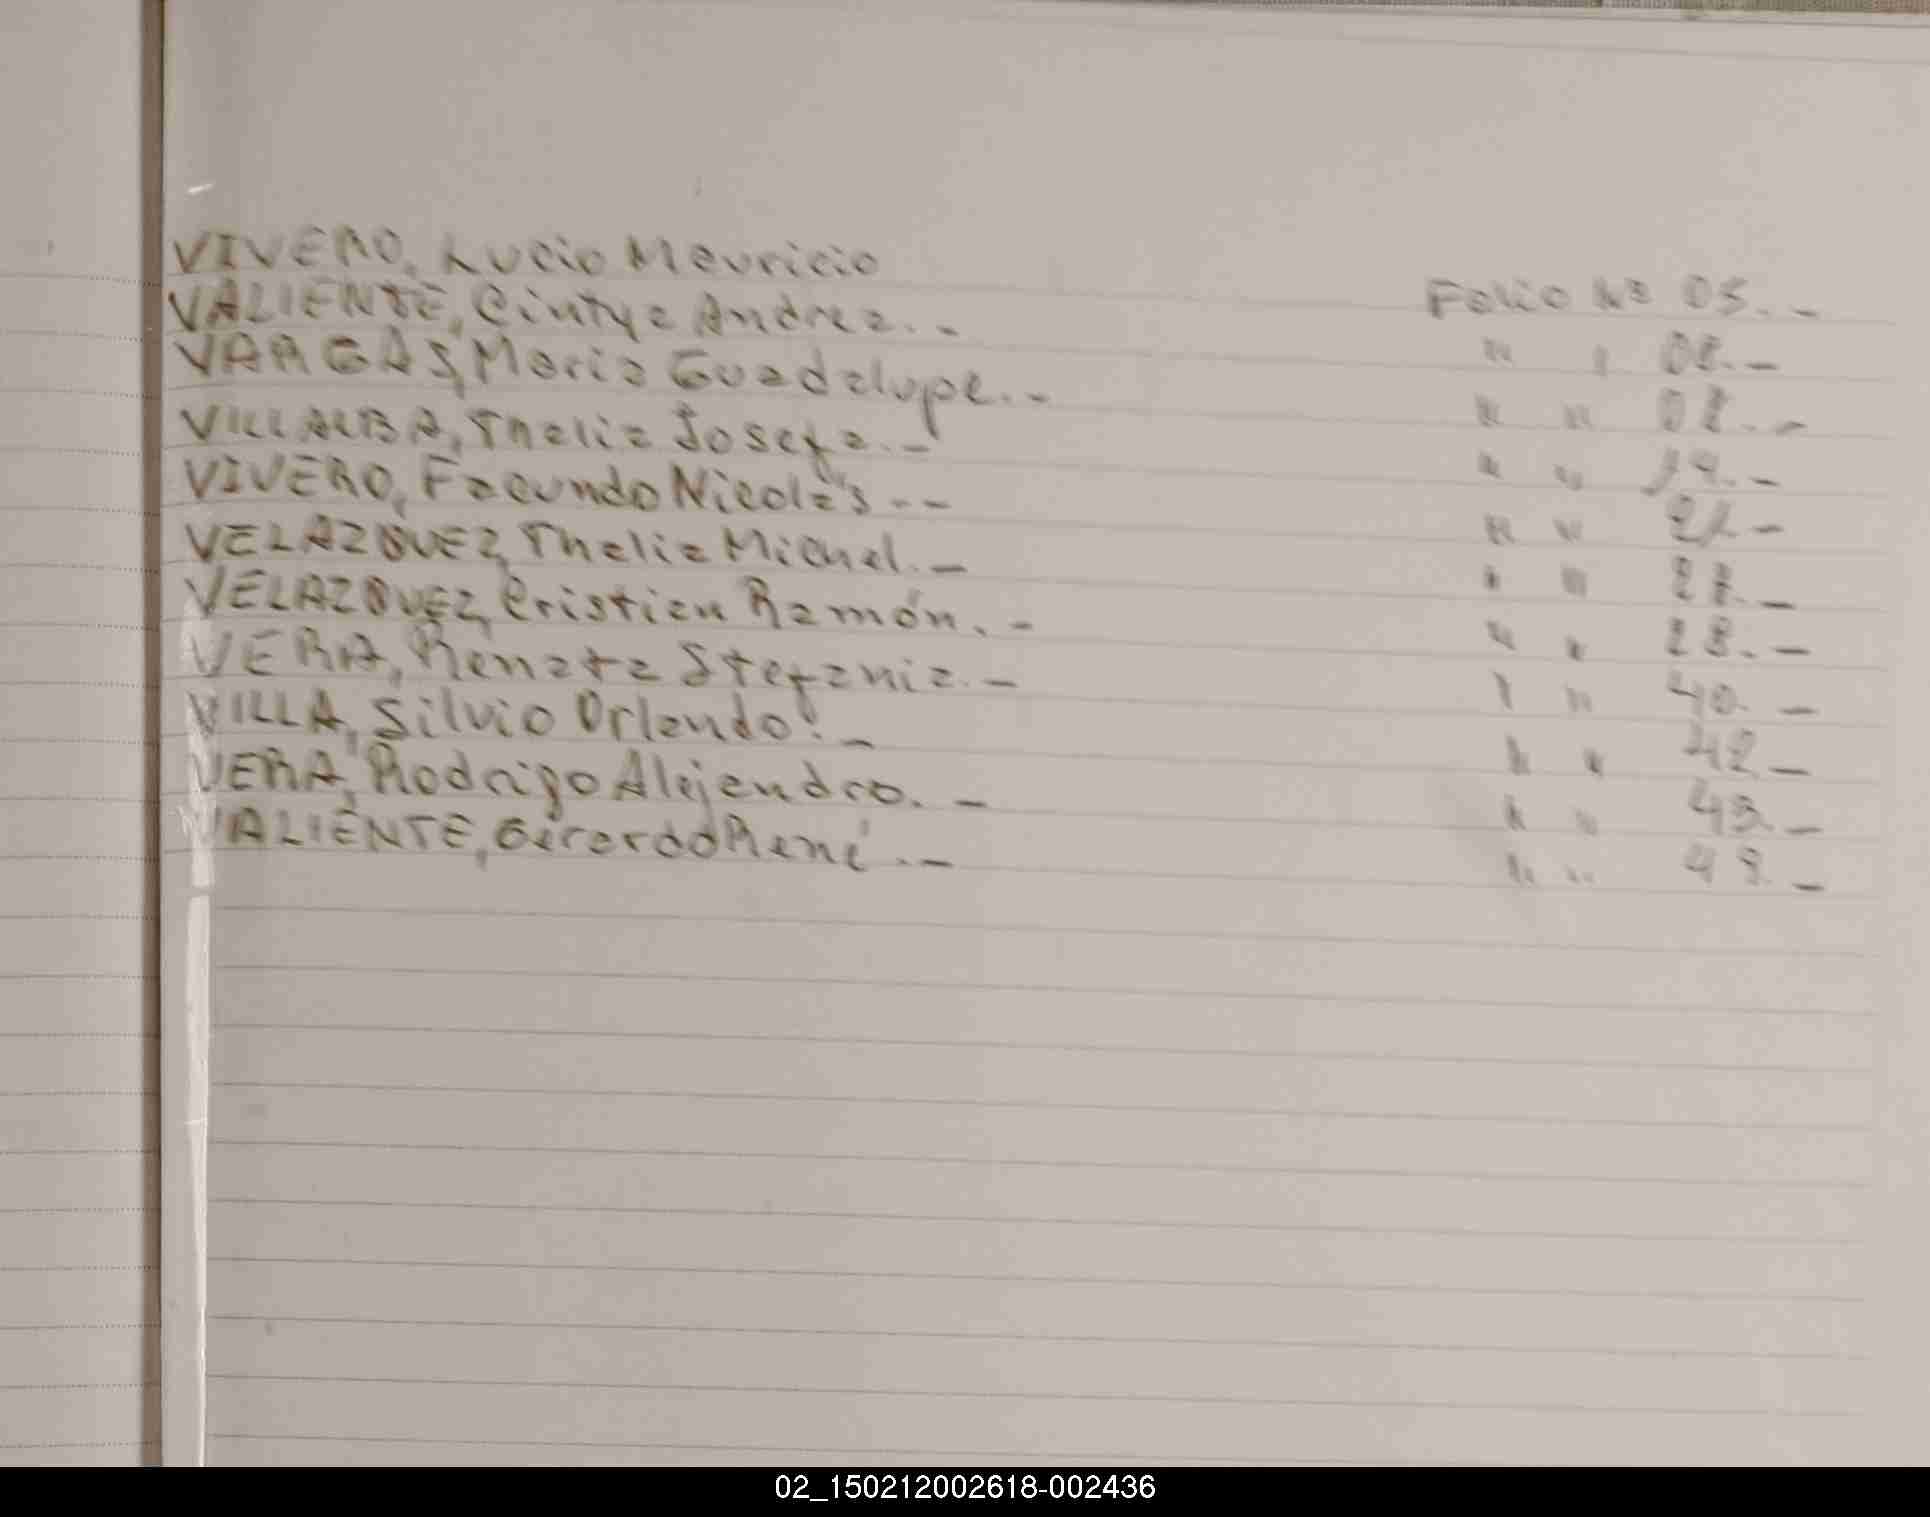 VIVERO, Lucio Mauricio Folio Nº 05.-
VALIENTE, Cintya Andrea.- " " 08.-
VARGAS, Maria Guadalupe.- " " 08.-
VILLALBA, Thalia Josefa.- " " 19.-
VIVERO, Facundo Nicolás.-- " " 21.-
VELAZQUEZ, Thalia Michel.- " " 27.-
VELAZQUEZ, Cristian Ramón.- " " 28.-
VERA, Renata Stefania.- " " 40.-
VILLA, Silvio Orlando.- " " 42.-
VERA, Rodrigo Alejandro.- " "
VALIENTE, Gerardo René.- " "
02_150212002618-002436